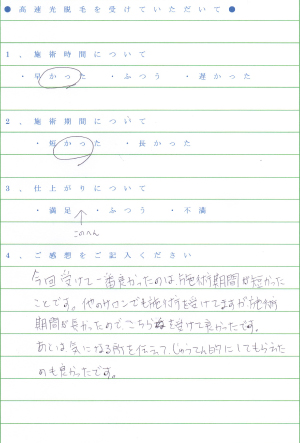 ● 高速光脱毛を受けていただいて ●
1．施術時間について
・早かった ・ふつう ・遅かった
2．施術期間について
・短かった ・長かった
3．仕上がりについて
・満足 ・ふつう ・不満
このへん
4．ご感想をご記入ください
今回受けて一番良かったのは、施術期間が短かった
ことです。他のサロンでも施術を受けてますが施術
期間が長かったので、こちらを受けて良かったです。
あとは気になる所を伝えて、じゅうてん的にしてもらえた
のも良かったです。